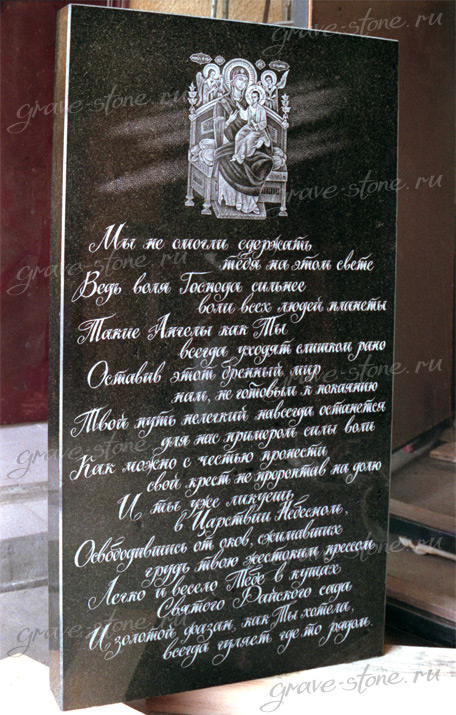 grave-stone.ru
grave-stone.ru
grave-stone.ru
grave-stone.ru
grave-stone.ru
grave-stone.ru
grave-stone.ru
grave-stone.ru
grave-stone.ru
Мы не смогли сдержать
тебя на этом свете
Ведь воля Господа сильнее
воли всех людей планеты
Такие Ангелы как Ты
всегда уходят слишком рано
Оставив этот бренный мир
нам, не готовым к покаянию
Твой путь нелегкий навсегда останется
для нас примером силы воли
Как можно с честью пронести
свой крест не пророптав на долю
И ты уже ликуешь
в Царствии Небесном,
Освободившись от оков, сжимавших
грудь твою жестоким прессом
Легко и весело Тебе в кущах
Святого Райского сада
И золотой фазан, как Ты хотела,
всегда гуляет где то рядом.